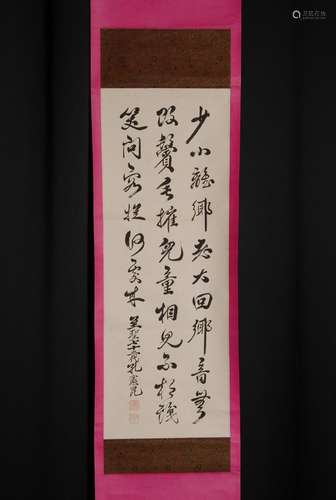 少小離鄉老大回鄉音無
改鬢毛摧兒童相見不相識
笑問客從何處來